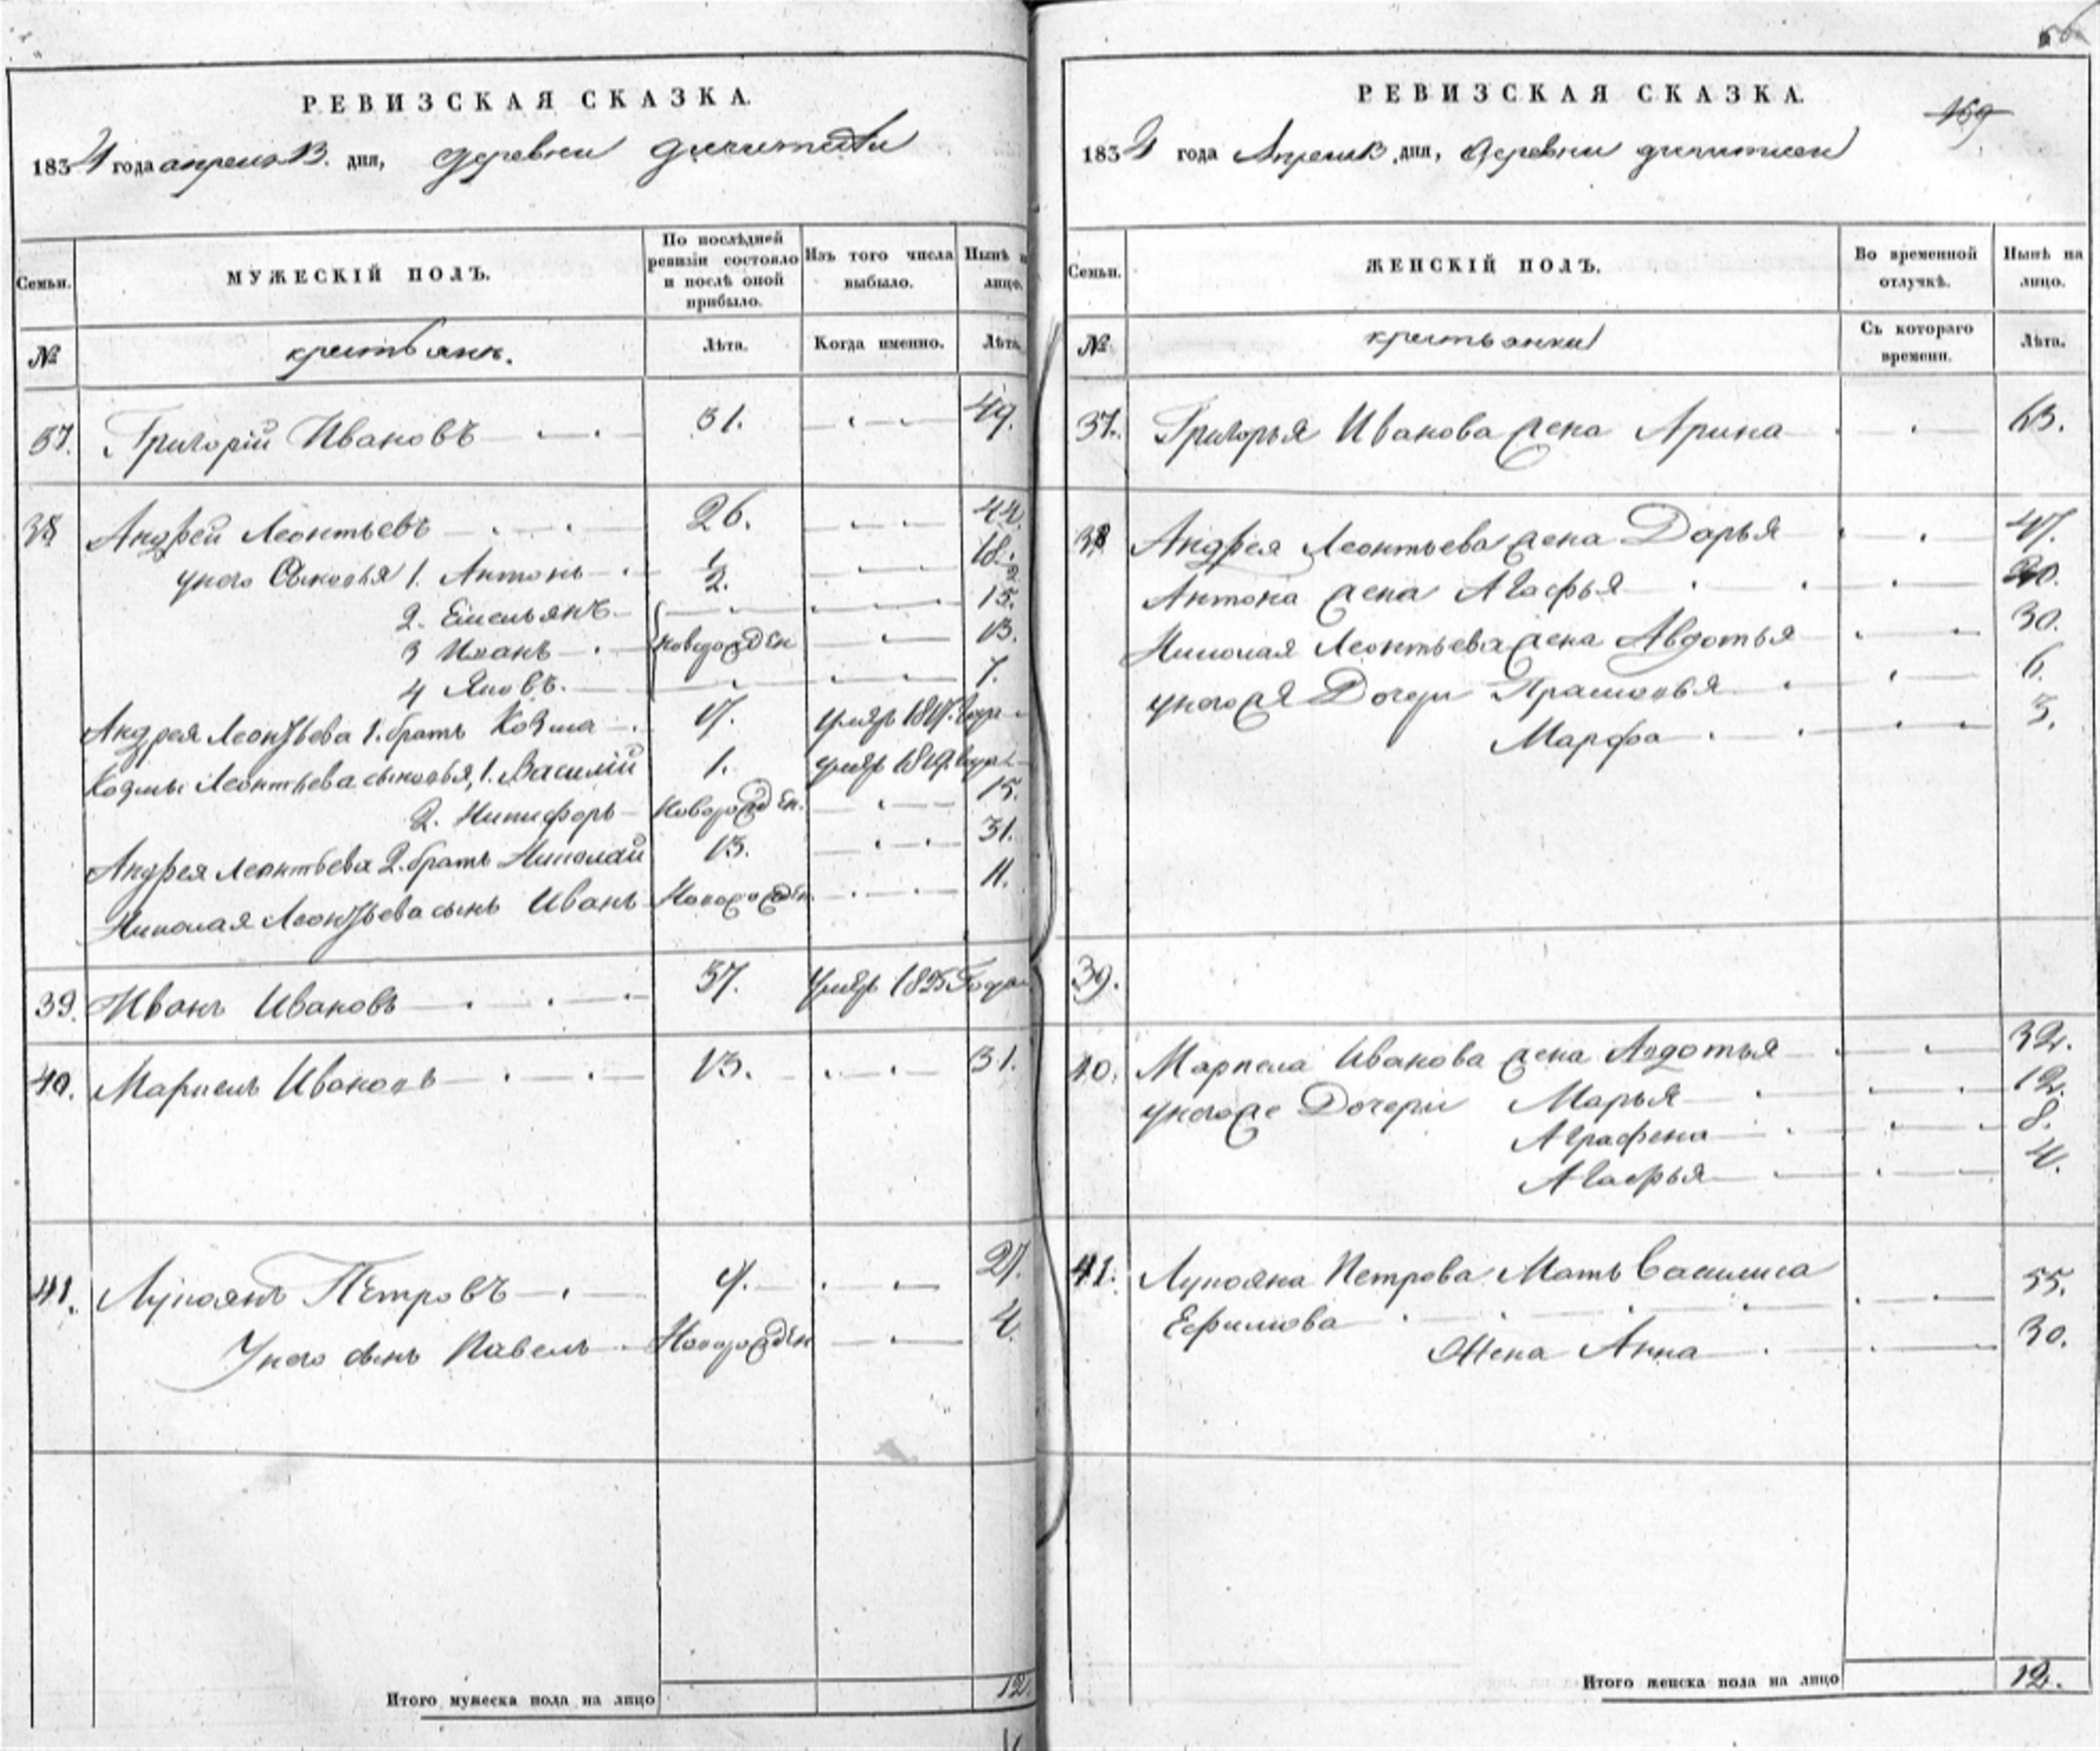 РЕВИЗСКАЯ СКАЗКА.
1834 года апреля 13. дня, деревни
Семьи. МУЖЕСКІЙ ПОЛЪ. По послѣдней ревизіи состояло и послѣ оной прибыло. Изъ того числа выбыло. Нынѣ на лицо.
№ крестьянъ. Лѣта. Когда именно. Лѣта.
37. Григорій Ивановъ 31. 49.
38 Андрей Леонтьевъ 26. 44.
у него Сыновья 1. Антонъ 1/2. 18.
2. Емельянъ 15.
3 Иванъ новорожден 13.
4 Яковъ. 7.
Андрея Леонтьева 1. братъ Козма 17. умеръ 1817. года
Козмы Леонтьева сыновья, 1. Василий 1. умеръ 1819. года
2. Никифоръ Новорожден. 15.
Андрея Леонтьева 2. братъ Николай 13. 31.
Николая Леонтьева сынъ Иванъ Новорожден 11.
39. Иванъ Ивановъ 37. Умеръ 1825 Года
40. Маркелъ Ивановъ 13. 31.
41. Лукоянъ Петровъ 9. 27.
У него сынъ Павелъ Новорожден 4.
Итого мужеска пола на лицо 12
РЕВИЗСКАЯ СКАЗКА.
169
1834 года Апреля 13 дня, деревни
Семьи. ЖЕНСКІЙ ПОЛЪ. Во временной отлучкѣ. Нынѣ на лицо.
№ крестьянки Съ котораго времени. Лѣта.
37. Григорья Иванова жена Арина 63.
38 Андрея Леонтьева жена Дарья 47.
Антона жена Агафья 20.
Николая Леонтьева жена Авдотья 30.
у него ж Дочери Прасковья 6.
Марфа 3.
39.
40. Маркела Иванова жена Авдотья 32.
у него же Дочери Марья 12.
Аграфена 8.
Агафья 4.
41. Лукояна Петрова Мать Василиса
Ефимова 55.
Жена Анна 30.
Итого женска пола на лицо 12.